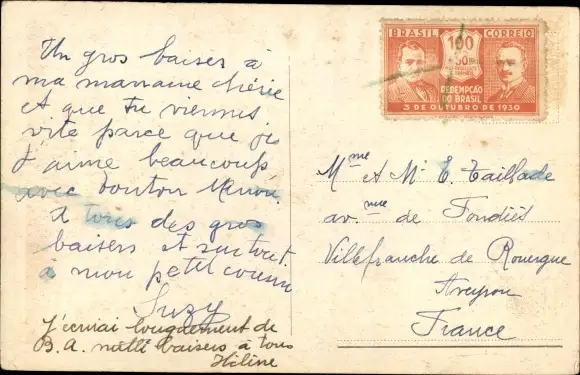 Un gros baiser à
ma mamaine chérie
et que tu viennes
vite parce que je
t'aime beaucoup
avec tonton
à tous des gros
baisers et surtout
à mon petit cousin
Suzy
J'écrirai longuement de
B. A. mille baisers à tous
Hélène
BRASIL CORREIO
100
REDEMPÇÃO
DO BRASIL
3 DE OUTUBRO DE 1930
Mme et Mr E. Taillade
av. de Fondiès
Villefranche de Rouergue
Aveyron
France